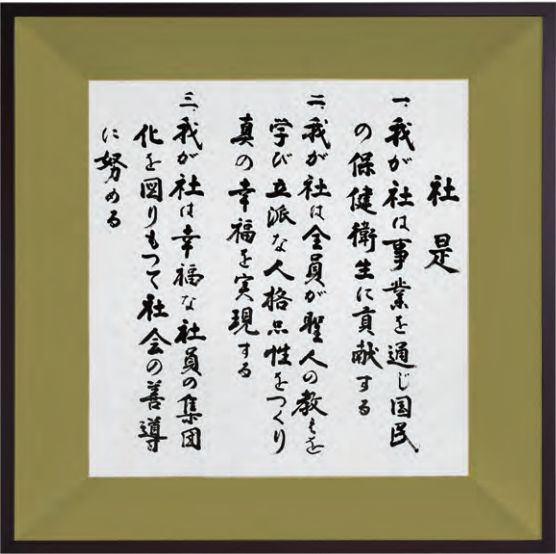 社是
一、我が社は事業を通じ国民
の保健衛生に貢献する
二、我が社は全員が聖人の教えを
学び立派な人格品性をつくり
真の幸福を実現する
三、我が社は幸福な社員の集団
化を図りもって社会の善導
に努める